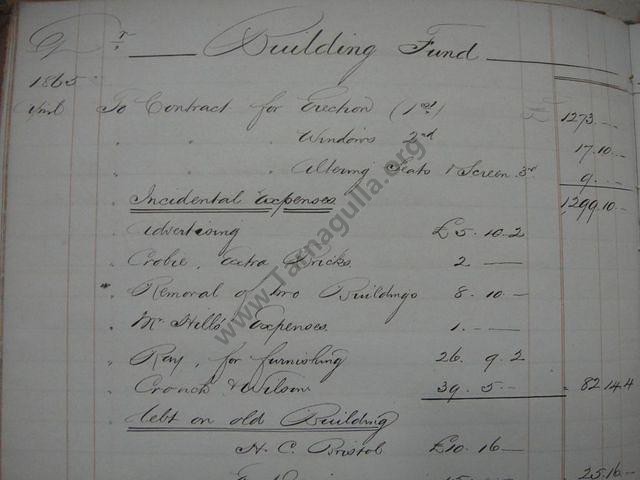 Dr Building Fund
1865
April To Contract for Erection (1st) 1273.--
" " Windows 2nd 17.10.-
" " Altering Seats & Screen 3rd 9.--
Incidental Expenses 1299.10.-
" Advertising £5.10.2
" Crobie, Extra Bricks 2 --
" Removal of two Buildings 8.10.-
" Mr. Hills' Expenses 1.--
" Ray, for furnishing 26.9.2
" Crouch & Wilson 39.5.- 82.14.4
" Debt on old Building
H. C. Bristol £10.16-
25.16-
www.Tarnagulla.org